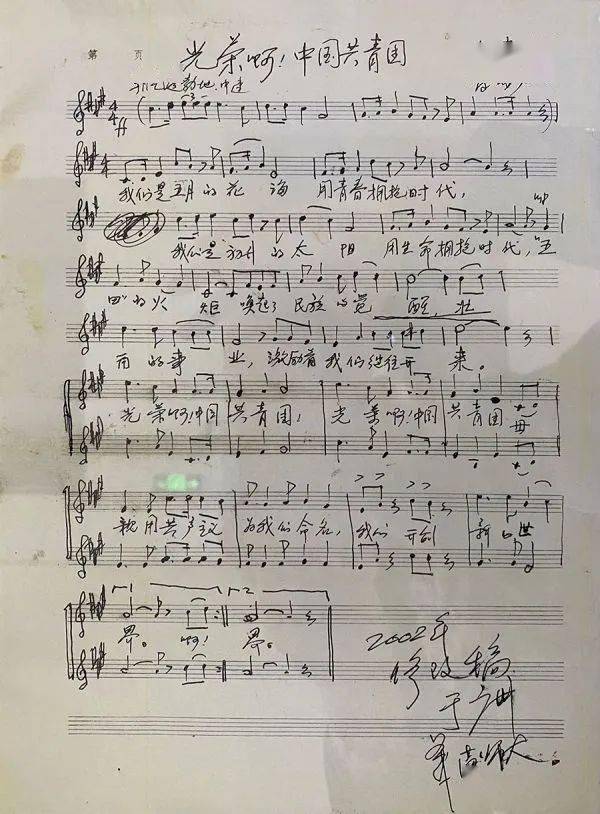 第 页
光荣啊!中国共青团
4
4
ff
我们是五月的花海 用青春拥抱时代,
我们是初升的太阳 用生命拥抱时代,"五
四"的火炬 唤起了民族的觉醒,壮
丽的事业,激励着我们继往开来。
光荣啊!中国共青团! 光荣啊!中国共青团 母
亲用共产主义 为我们命名, 我们开创 新的世
1 2
界。啊! 界。
2002年
修改稿
于广州
华南师大